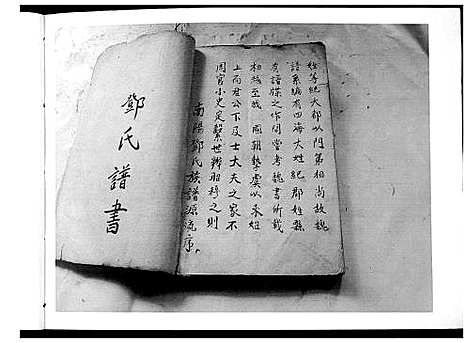 鄧氏譜書
南陽鄧氏族譜源流序
周官小史定繫世辨昭穆之則
上而君公下及士大夫之家不
相穆至我國朝摯虞以來姓
有譜牒之作閒嘗考魏書所載
譜系編有四海大姓紀郡姓縣
姓等紀大都以門第相尚故魏